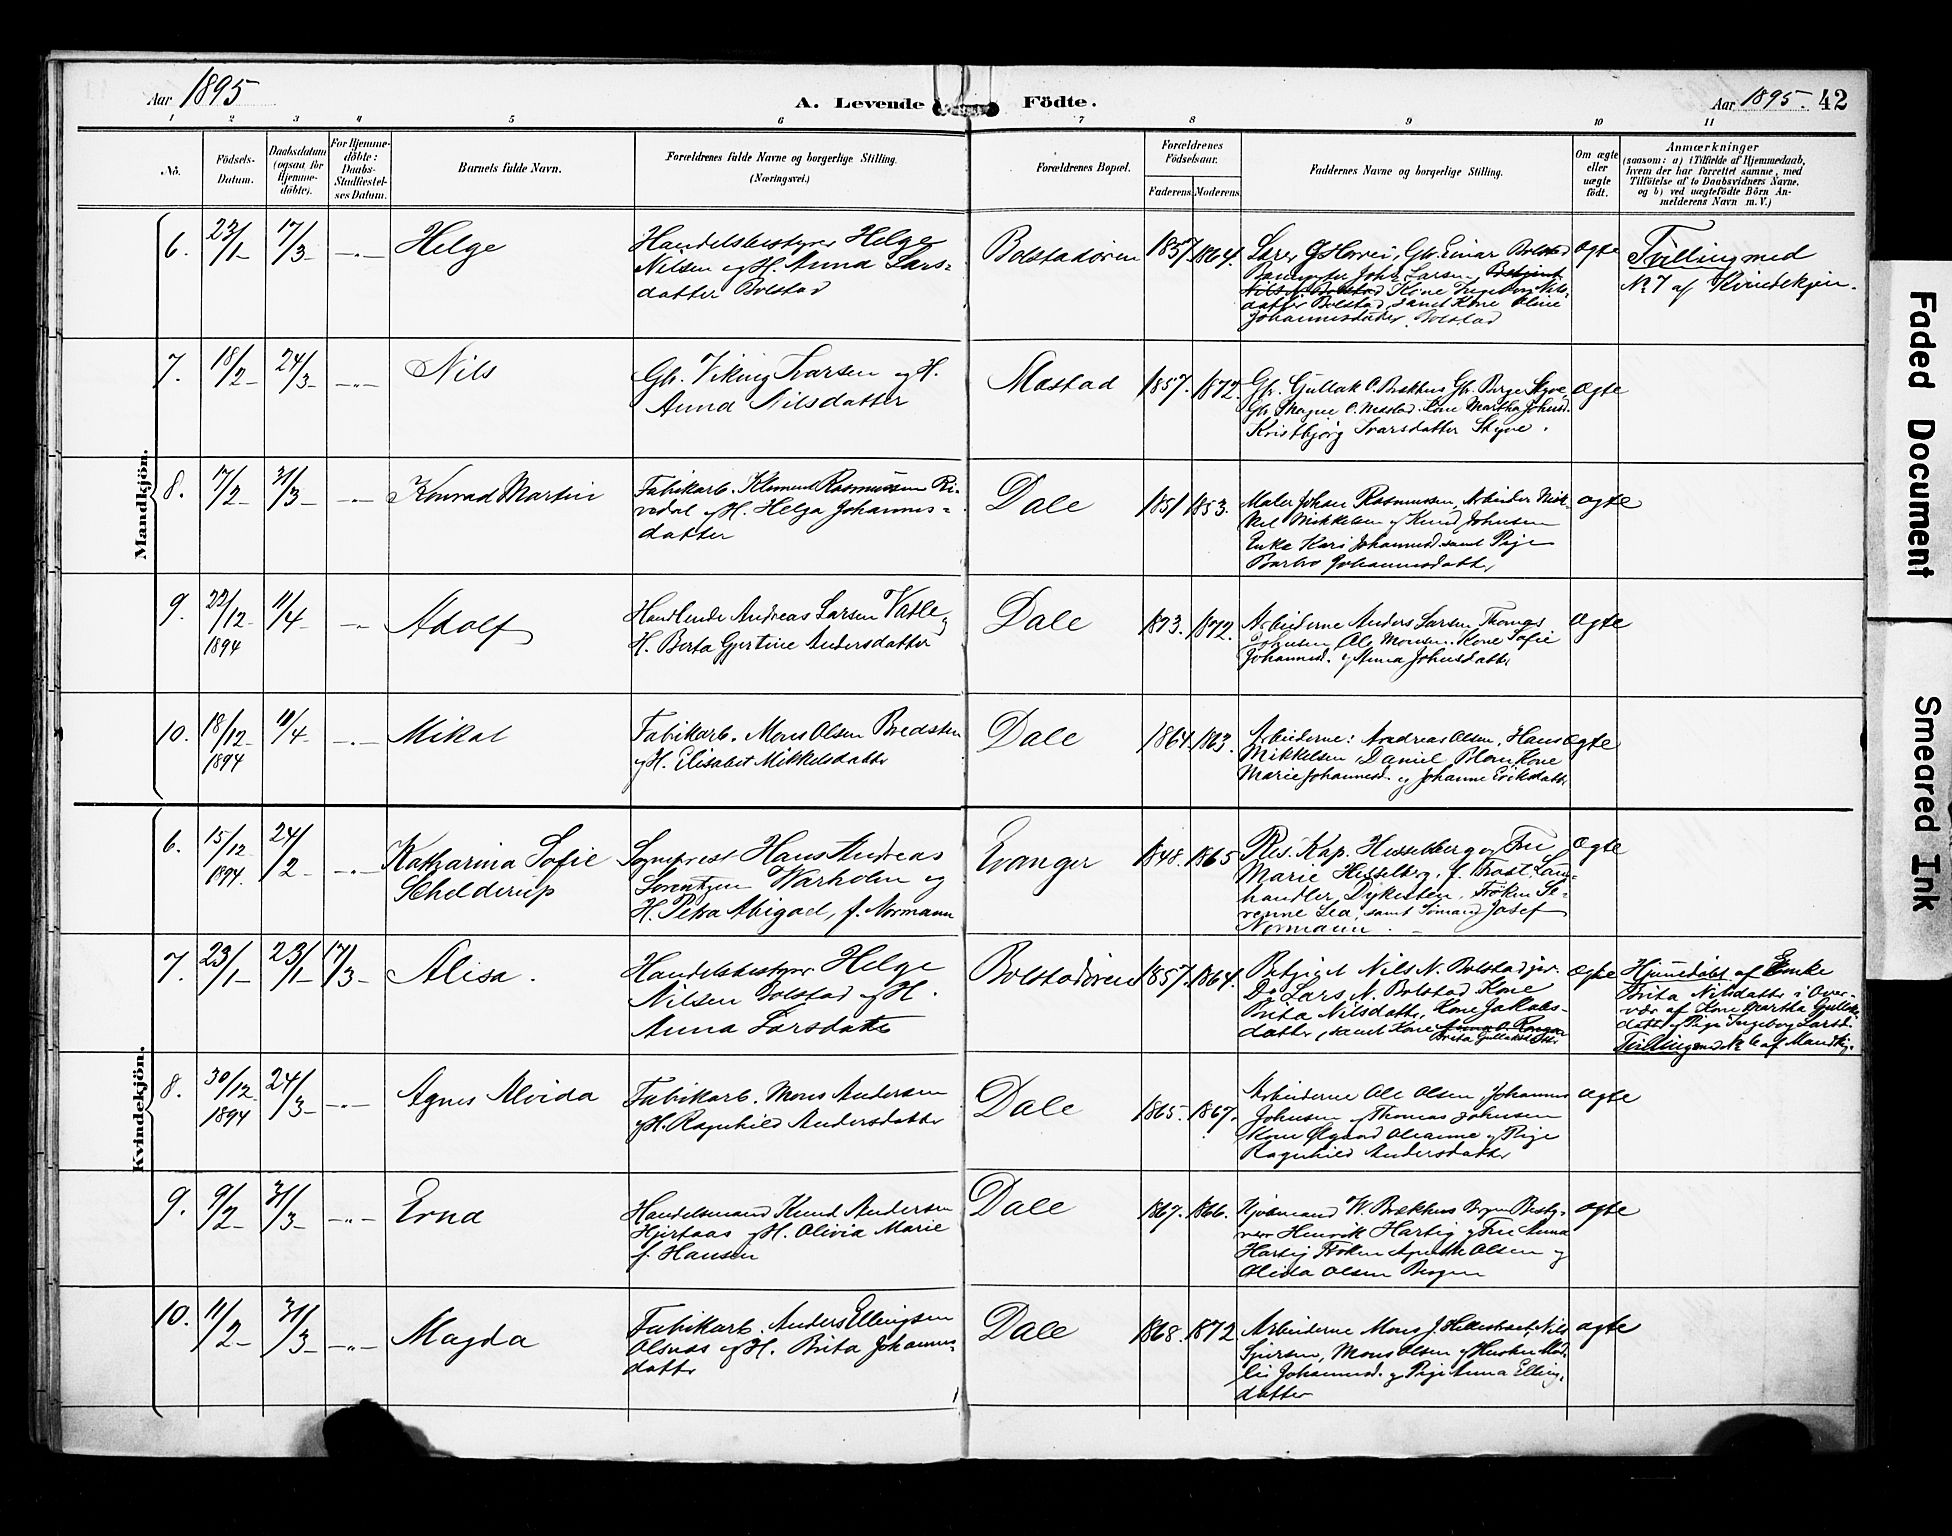 Aar 1895
A. Levende Födte.
Aar 1895. 42
1 2 3 4 5 6 7 8 9 10 11
No.
Födsels-
Datum.
Daabsdatum
(ogsaa for
Hjemme-
döbte).
For Hjemme-
döbte:
Daabs-
Stadfæstel-
ses Datum.
Barnets fulde Navn.
Forældrenes fulde Navne og borgerlige Stilling.
(Næringsvei.)
Forældrenes Bopæl.
Forældrenes
Födselsaar.
Faderens. Moderens.
Faddernes Navne og borgerlige Stilling.
Om ægte
eller
uægte
födt.
Anmærkninger
(saasom: a) i Tilfælde af Hjemmedaab,
hvem der har forrettet samme, med
Tilföielse af to Daabsvidners Navne,
og b) ved uægtefödte Börn An-
melderens Navn m. V.)
Mandkjön.
6. 23/1 17/3 -„-
Helge
Handelsbestyrer Helge
Nilsen og H. Anna Lars-
datter Bolstad
Bolstadören 1857. 1864.
Lærer G. Horvei, Gbr. Einar Bolstad
Larsen,
Nils Bolstad Kone Ingeborg Nils-
datter Bolstad samt Kone Oline
Johannesdatter Bolstad
ægte
Tvilling med
No 7 af Kvindekjön.
7. 18/2 24/3 -„-
Nils
Gbr. Viking Ivarsen og H.
Anna Nilsdatter
Mæstad 1857. 1872.
Gbr. Gullak O. Brækhus Gbr. Borge Skyve,
Gbr. Magne O. Mæstad. Kone Martha Johnsd.
Kristbjörg Ivarsdatter Skyve.
ægte
8. 17/2 31/3 -„-
Konrad Martin
Fabrikarb. Klement Rasmussen Ri-
vedal og H. Helga Johannes-
datter
Dale 1851 1853.
Maler Johan Rasmussen, Arbeider Mik-
kel Mikkelsen og Knud Johnsen
Enke Kari Johannesd. samt Pige
Barbro Johannesdatter
ægte
9. 22/12 1894 11/4 -„-
Adolf
Handlende Andreas Larsen Vatle og
H. Berta Gjertine Andersdatter
Dale 1873. 1872.
Arbeiderne Anders Larsen Thomas
Johnsen Ole Monsen. Kone Sofie
Johannesd. og Anna Johnsdatter
ægte
10. 18/12 1894 11/4 -„-
Mikal
Fabrikarb. Mons Olsen Bredsten
og H. Elisabet Mikkelsdatter
Dale 1864. 1863.
Arbeiderne: Andreas Olsen, Hans
Mikkelsen, Daniel Blom Kone
Marie Johannesd. og Johanne Eriksdatter
ægte
Kvindekjön.
6. 15/12 1894. 24/2 -„-
Katharina Sofie
Schelderup
Sognprest Hans Andreas
Sorentzen Warholm og
H. Petra Abigael, f. Normann
Evanger 1848. 1865
Res. Kap. Hesselberg og Fru
Marie Hesselberg, f. Trost, Lan-
handler Dykesten, Fröken Se-
renne Lea, samt Sömand Josef
Normann.
ægte
7. 23/1 23/1 17/3
Alisa.
Handelsbestyrer Helge
Nilsen Bolstad og H.
Anna Larsdatter
Bolstadören 1857. 1864.
Betjent Nils N. Bolstad jr.
Do Lars N. Bolstad Kone
Brita Nilsdatter, Kone Jakobs-
datter, samt Kone Anna O.
Brita Gullaksdatter
ægte
Hjemmedöbt af Enke
Brita Nilsdatter i Over-
vær af Kone Martha Gullaks-
datter og Pige Ingeborg Larsd.
Tvilling med No 6 af Mandkj.
8. 30/12 1894 24/3 -„-
Agnes Alvida
Fabrikarb. Mons Andersen
og H. Ragnhild Andersdatter
Dale 1865. 1867.
Arbeiderne Ole Olsen, Johannes
Johnsen og Thomas Johnsen
Kone Olianne og Pige
Ragnhild Andersdatter
ægte
9. 9/2 31/3 -„-
Erna
Handelsmand Knud Andersen
Hjertaas og H. Olivia Marie
f. Hansen
Dale 1867. 1866.
Kjöbmand W. Brækhus Bergen Besty-
rer Henrik Hartig og Frue Anna
Hartig Fröken Agnethe Olsen og
Alida Olsen Bergen
ægte
10. 11/2 31/3 -„-
Magda
Fabrikarb. Anders Ellingsen
Olsnæs og H. Brita Johannes-
datter
Dale 1868. 1872
Arbeiderne Mons J. Nils
Sjursen, Mons Olsen og Hustru Mad-
li Johannesd. og Pige Anna Ellings-
datter
ægte
Faded Document
Smeared Ink